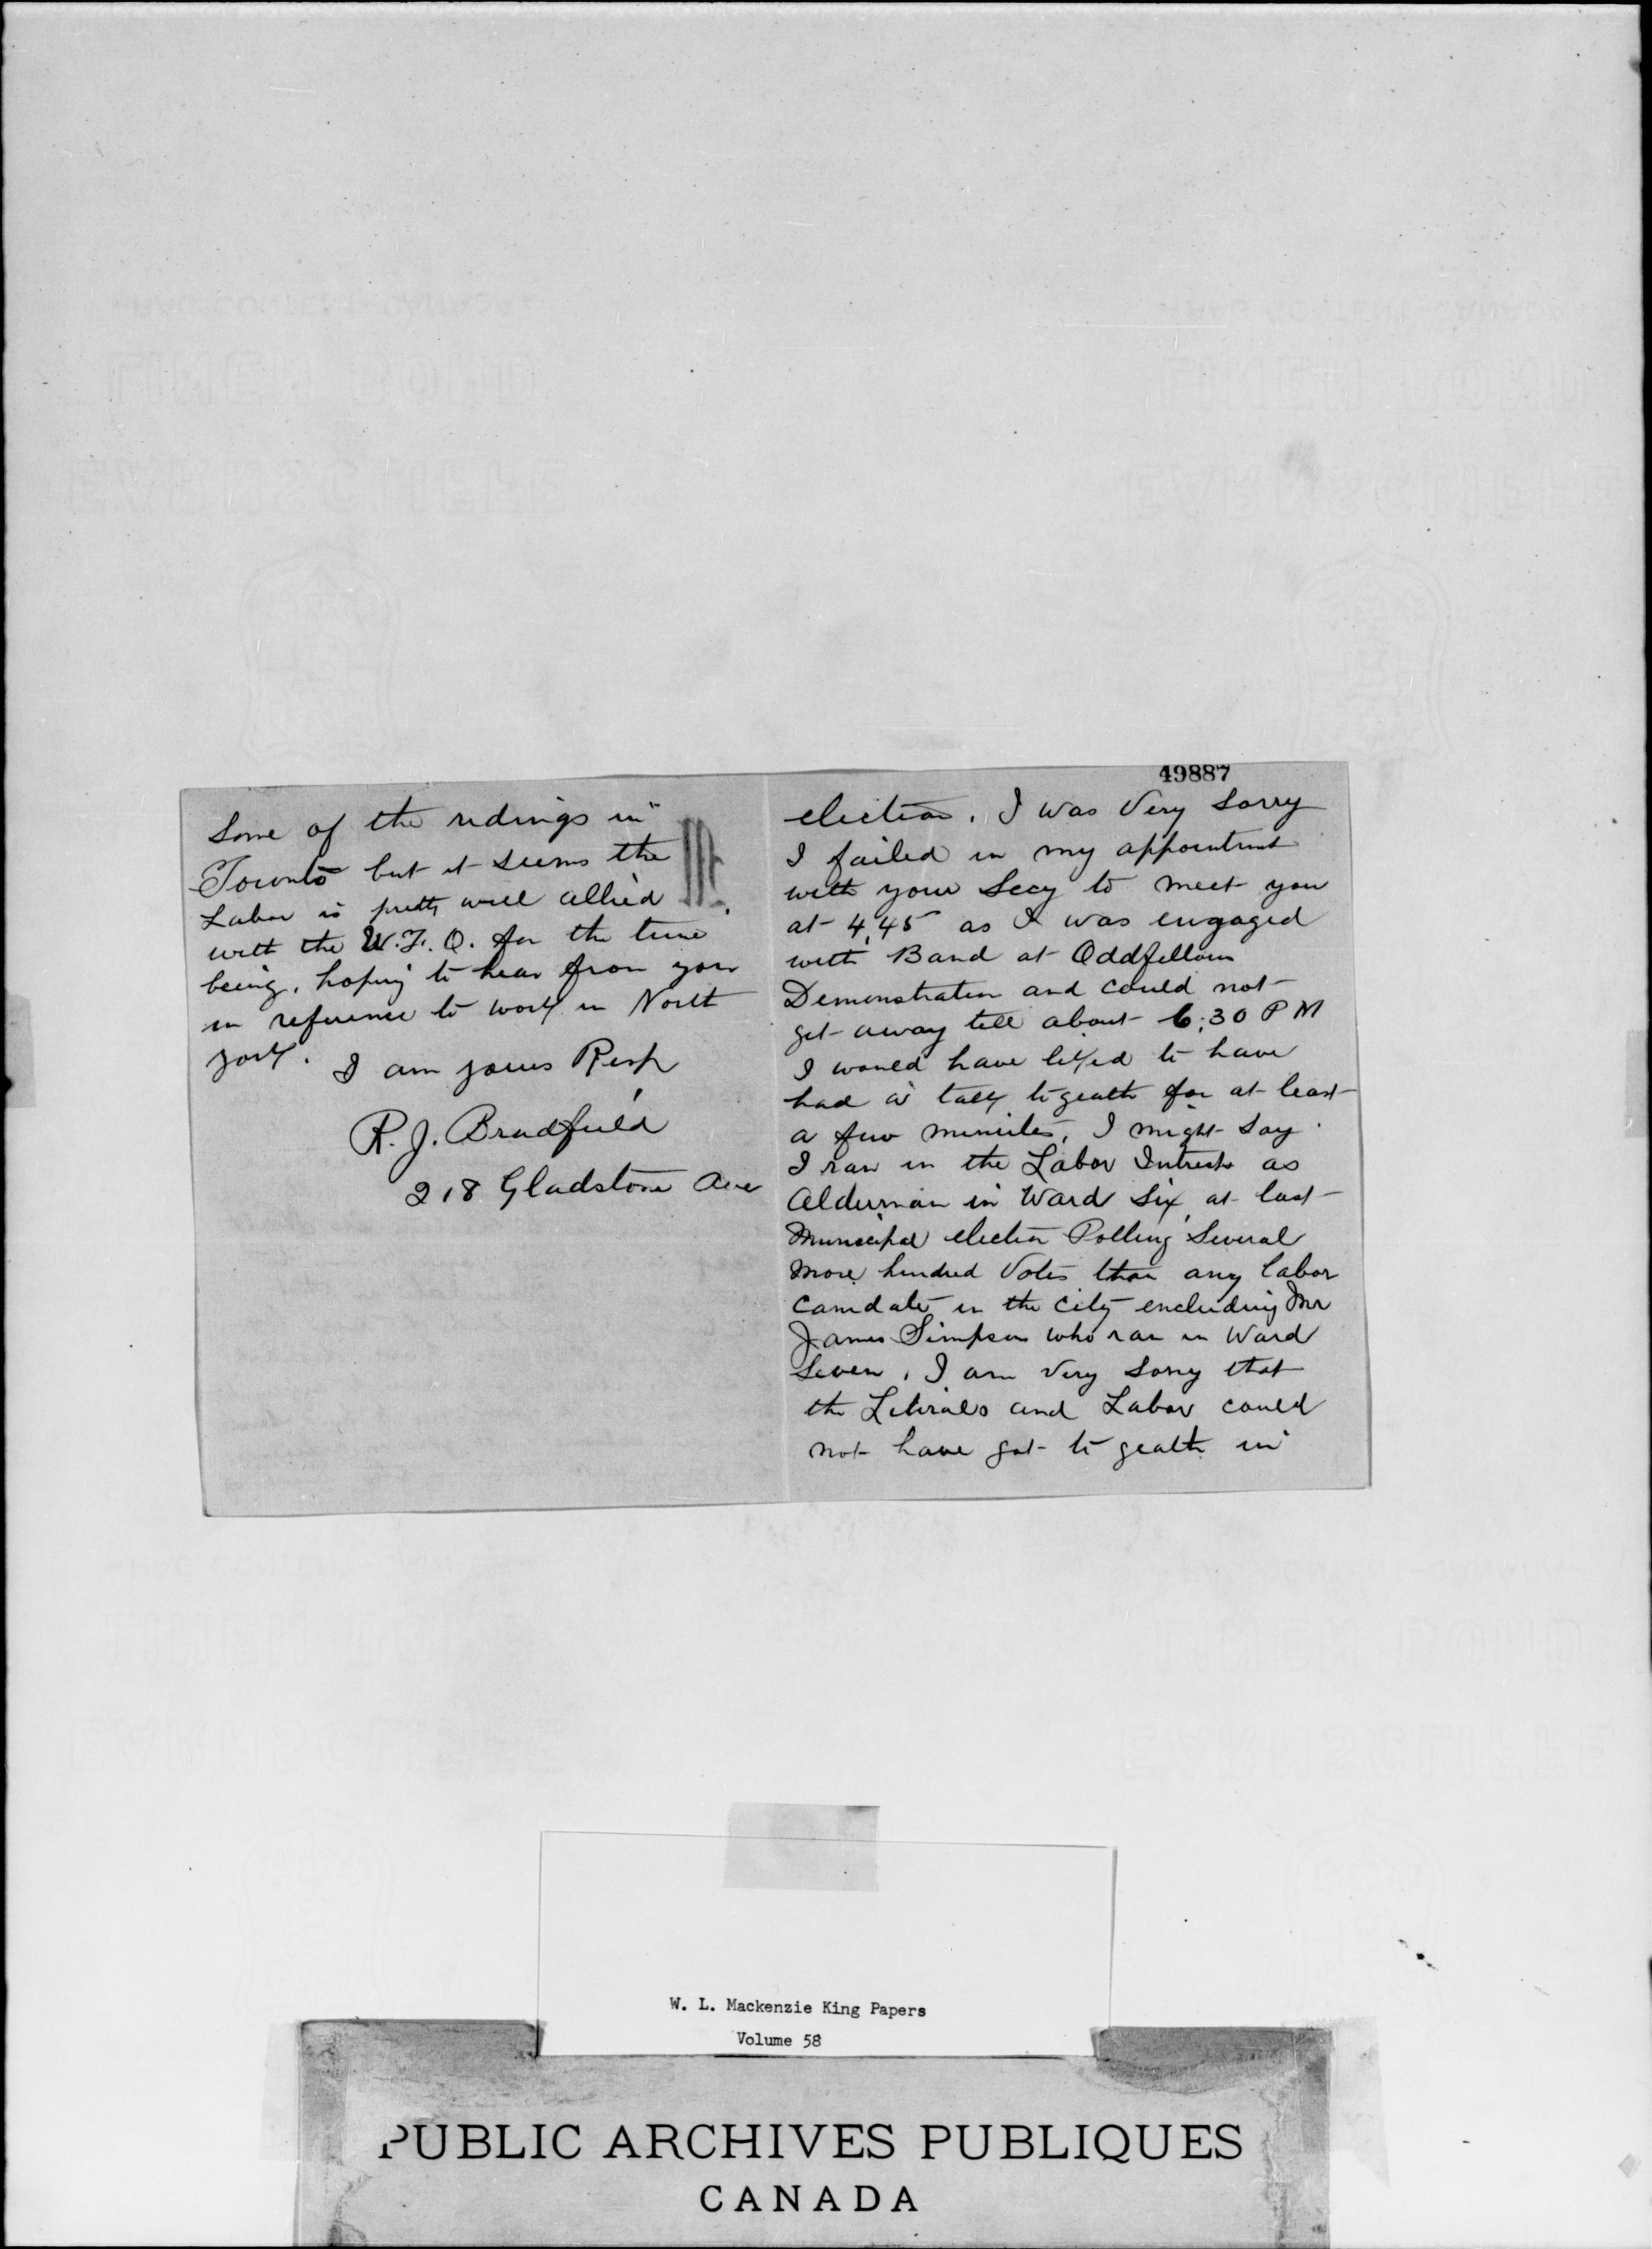 49887
election. I was Very Sorry
I failed in my appointmt
with your Secy to meet you
at 4,45 as I was engaged
with Band at Oddfellows
Demonstration and could not
get away till about 6:30 P M
I would have liked to have
had a talk to geather for at least
a few minites, I might Say
I ran in the Labor Intrests as
Alderman in Ward Six, at last
Municipal election Polling Several
More hundred Votes than any labor
Canidate in the City encluding Mr
James Simpson who ran in Ward
Seven, I am Very Sorry that
the Liberals and Labor could
not have got to geather in
Some of the ridings in
Toronto but it seems the
Labor is pretty well allied
with the U.F.O. for the time
being, hoping to hear from you
in reference to work in North
York.
I am yours Resp
R. J. Bradfield
218 Gladstone Ave
W. L. Mackenzie King Papers
Volume 58
PUBLIC ARCHIVES PUBLIQUES
CANADA